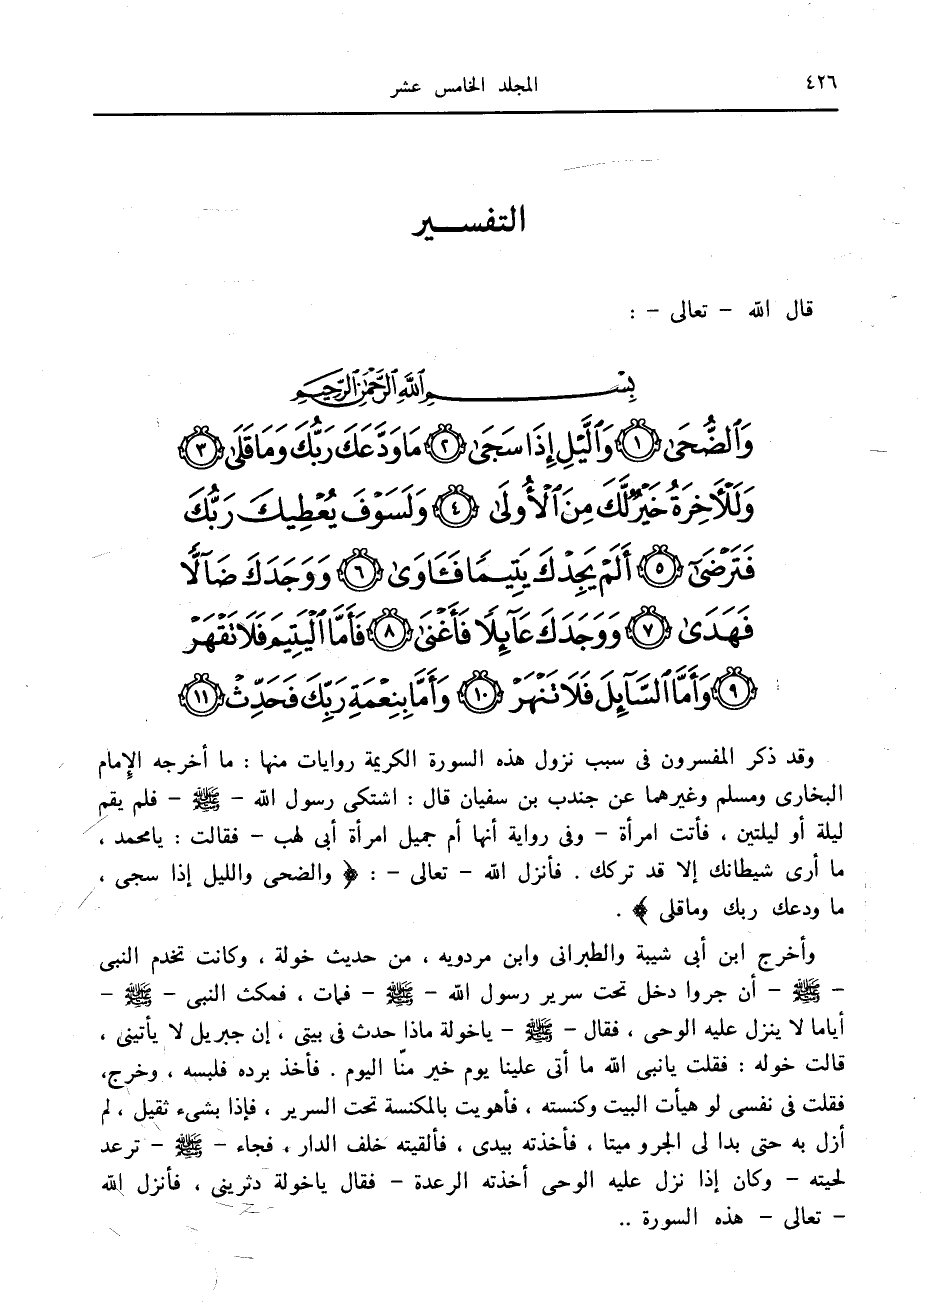 ٤٢٦
المجلد الخامس عشر
التفسير
قال الله – تعالى – :
بِسْمِ ٱللَّهِ ٱلرَّحْمَٰنِ ٱلرَّحِيمِ
وَٱلضُّحَىٰ ۝١ وَٱلَّيْلِ إِذَا سَجَىٰ ۝٢ مَا وَدَّعَكَ رَبُّكَ وَمَا قَلَىٰ ۝٣
وَلَلْأَخِرَةُ خَيْرٌ لَّكَ مِنَ ٱلْأُولَىٰ ۝٤ وَلَسَوْفَ يُعْطِيكَ رَبُّكَ
فَتَرْضَىٰٓ ۝٥ أَلَمْ يَجِدْكَ يَتِيمًا فَـَٔاوَىٰ ۝٦ وَوَجَدَكَ ضَآلًّا
فَهَدَىٰ ۝٧ وَوَجَدَكَ عَآئِلًا فَأَغْنَىٰ ۝٨ فَأَمَّا ٱلْيَتِيمَ فَلَا تَقْهَرْ
۝٩ وَأَمَّا ٱلسَّآئِلَ فَلَا تَنْهَرْ ۝١٠ وَأَمَّا بِنِعْمَةِ رَبِّكَ فَحَدِّثْ ۝١١
وقد ذكر المفسرون فى سبب نزول هذه السورة الكريمة روايات منها : ما أخرجه الإمام
البخارى ومسلم وغيرهما عن جندب بن سفيان قال : اشتكى رسول الله – ﷺ – فلم يقم
ليلة أو ليلتين ، فأتت امرأة – وفى رواية أنها أم جميل امرأة أبى لهب – فقالت : يامحمد ،
ما أرى شيطانك إلا قد تركك . فأنزل الله – تعالى – : ﴿ والضحى والليل إذا سجى ،
ما ودعك ربك وماقلى ﴾ .
وأخرج ابن أبى شيبة والطبرانى وابن مردويه ، من حديث خولة ، وكانت تخدم النبى
– ﷺ – أن جروا دخل تحت سرير رسول الله – ﷺ – فمات ، فمكث النبى – ﷺ –
أياما لا ينزل عليه الوحى ، فقال – ﷺ – ياخولة ماذا حدث فى بيتى ، إن جبريل لا يأتينى ،
قالت خوله : فقلت يانبى الله ما أتى علينا يوم خير منّا اليوم . فأخذ برده فلبسه ، وخرج،
فقلت فى نفسى لو هيأت البيت وكنسته ، فأهويت بالمكنسة تحت السرير ، فإذا بشىء ثقيل ، لم
أزل به حتى بدا لى الجرو ميتا ، فأخذته بيدى ، فألقيته خلف الدار ، فجاء – ﷺ – ترعد
لحيته – وكان إذا نزل عليه الوحى أخذته الرعدة – فقال ياخولة دثرينى ، فأنزل الله
– تعالى – هذه السورة ..